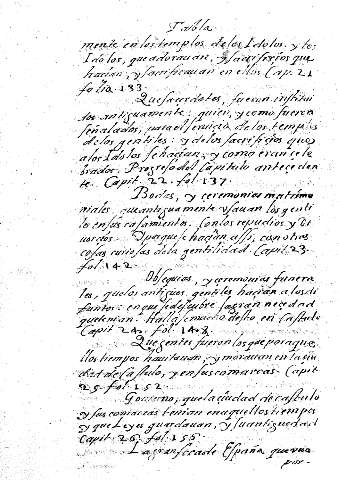 Tabla
mente en los templos de los Idolos. y los
Idolos, que adorauan, y sacrificios que
hacian, y sacrificauan en ellos Cap. 21
folio 133.
Que sacerdotes, fueron institui
dos antiguamente: quien, y como fueron
señalados, para el seruicio de los templos
de los gentiles: y de los sacrificios que
a los Idolos se hacian, y como eran cele
brados. Progreso del Capitulo anteceden
te. Capit. 22. fol. 137.
Bodas, y ceremonias matrimo
niales, que antiguamente usauan los genti
les en sus casamientos. Con los repudios y Di
uorcios. y porque hacian assi, con otras
cosas curiosas de la gentilidad. Capit. 23.
fol. 142.
Obsequias, y ceremonias funera
les, que los antiguos gentiles hacian a los di
funtos: en que se descubre la gran necedad
que tenian. Halla mucho desto en Castulo
Capit 24. fol. 148.
Que gentes fueron las que por aque
llos tiempos hauitauan, y morauan en la ciu
dad de Castulo, y en sus comarcas. Capit
25. fol. 152.
Gouierno, que la ciudad de castulo
y sus comarcas tenian en aquellos tiempos
y que Leyes guardauan, y su antiguedad
Capit 26. fol. 156.
La gran seca de España que vna
por